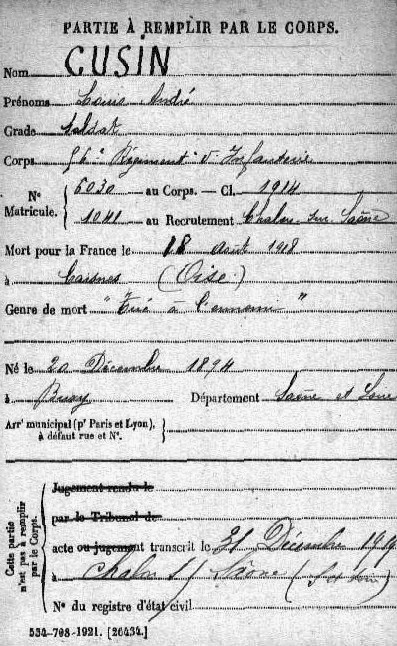 PARTIE À REMPLIR PAR LE CORPS.
Nom CUSIN
Prénoms Louis André
Grade soldat
Corps 56e Régiment d'Infanterie
N° Matricule. 6030 au Corps. — Cl. 1914
1041 au Recrutement Chalon sur Saône
Mort pour la France le 18 août 1918
à Caisnes (Oise)
Genre de mort "Tué à l'ennemi"
Né le 20 Décembre 1894
à Buxy Département Saône et Loire
Arrt municipal (pr Paris et Lyon),
à défaut rue et N°.
Cette partie n'est pas à remplir par le Corps.
Jugement rendu le
par le Tribunal de
acte ou jugement transcrit le 31 Décembre
à Chalon s/ Saône (S et Loire)
N° du registre d'état civil
534-708-1921. [26434.]